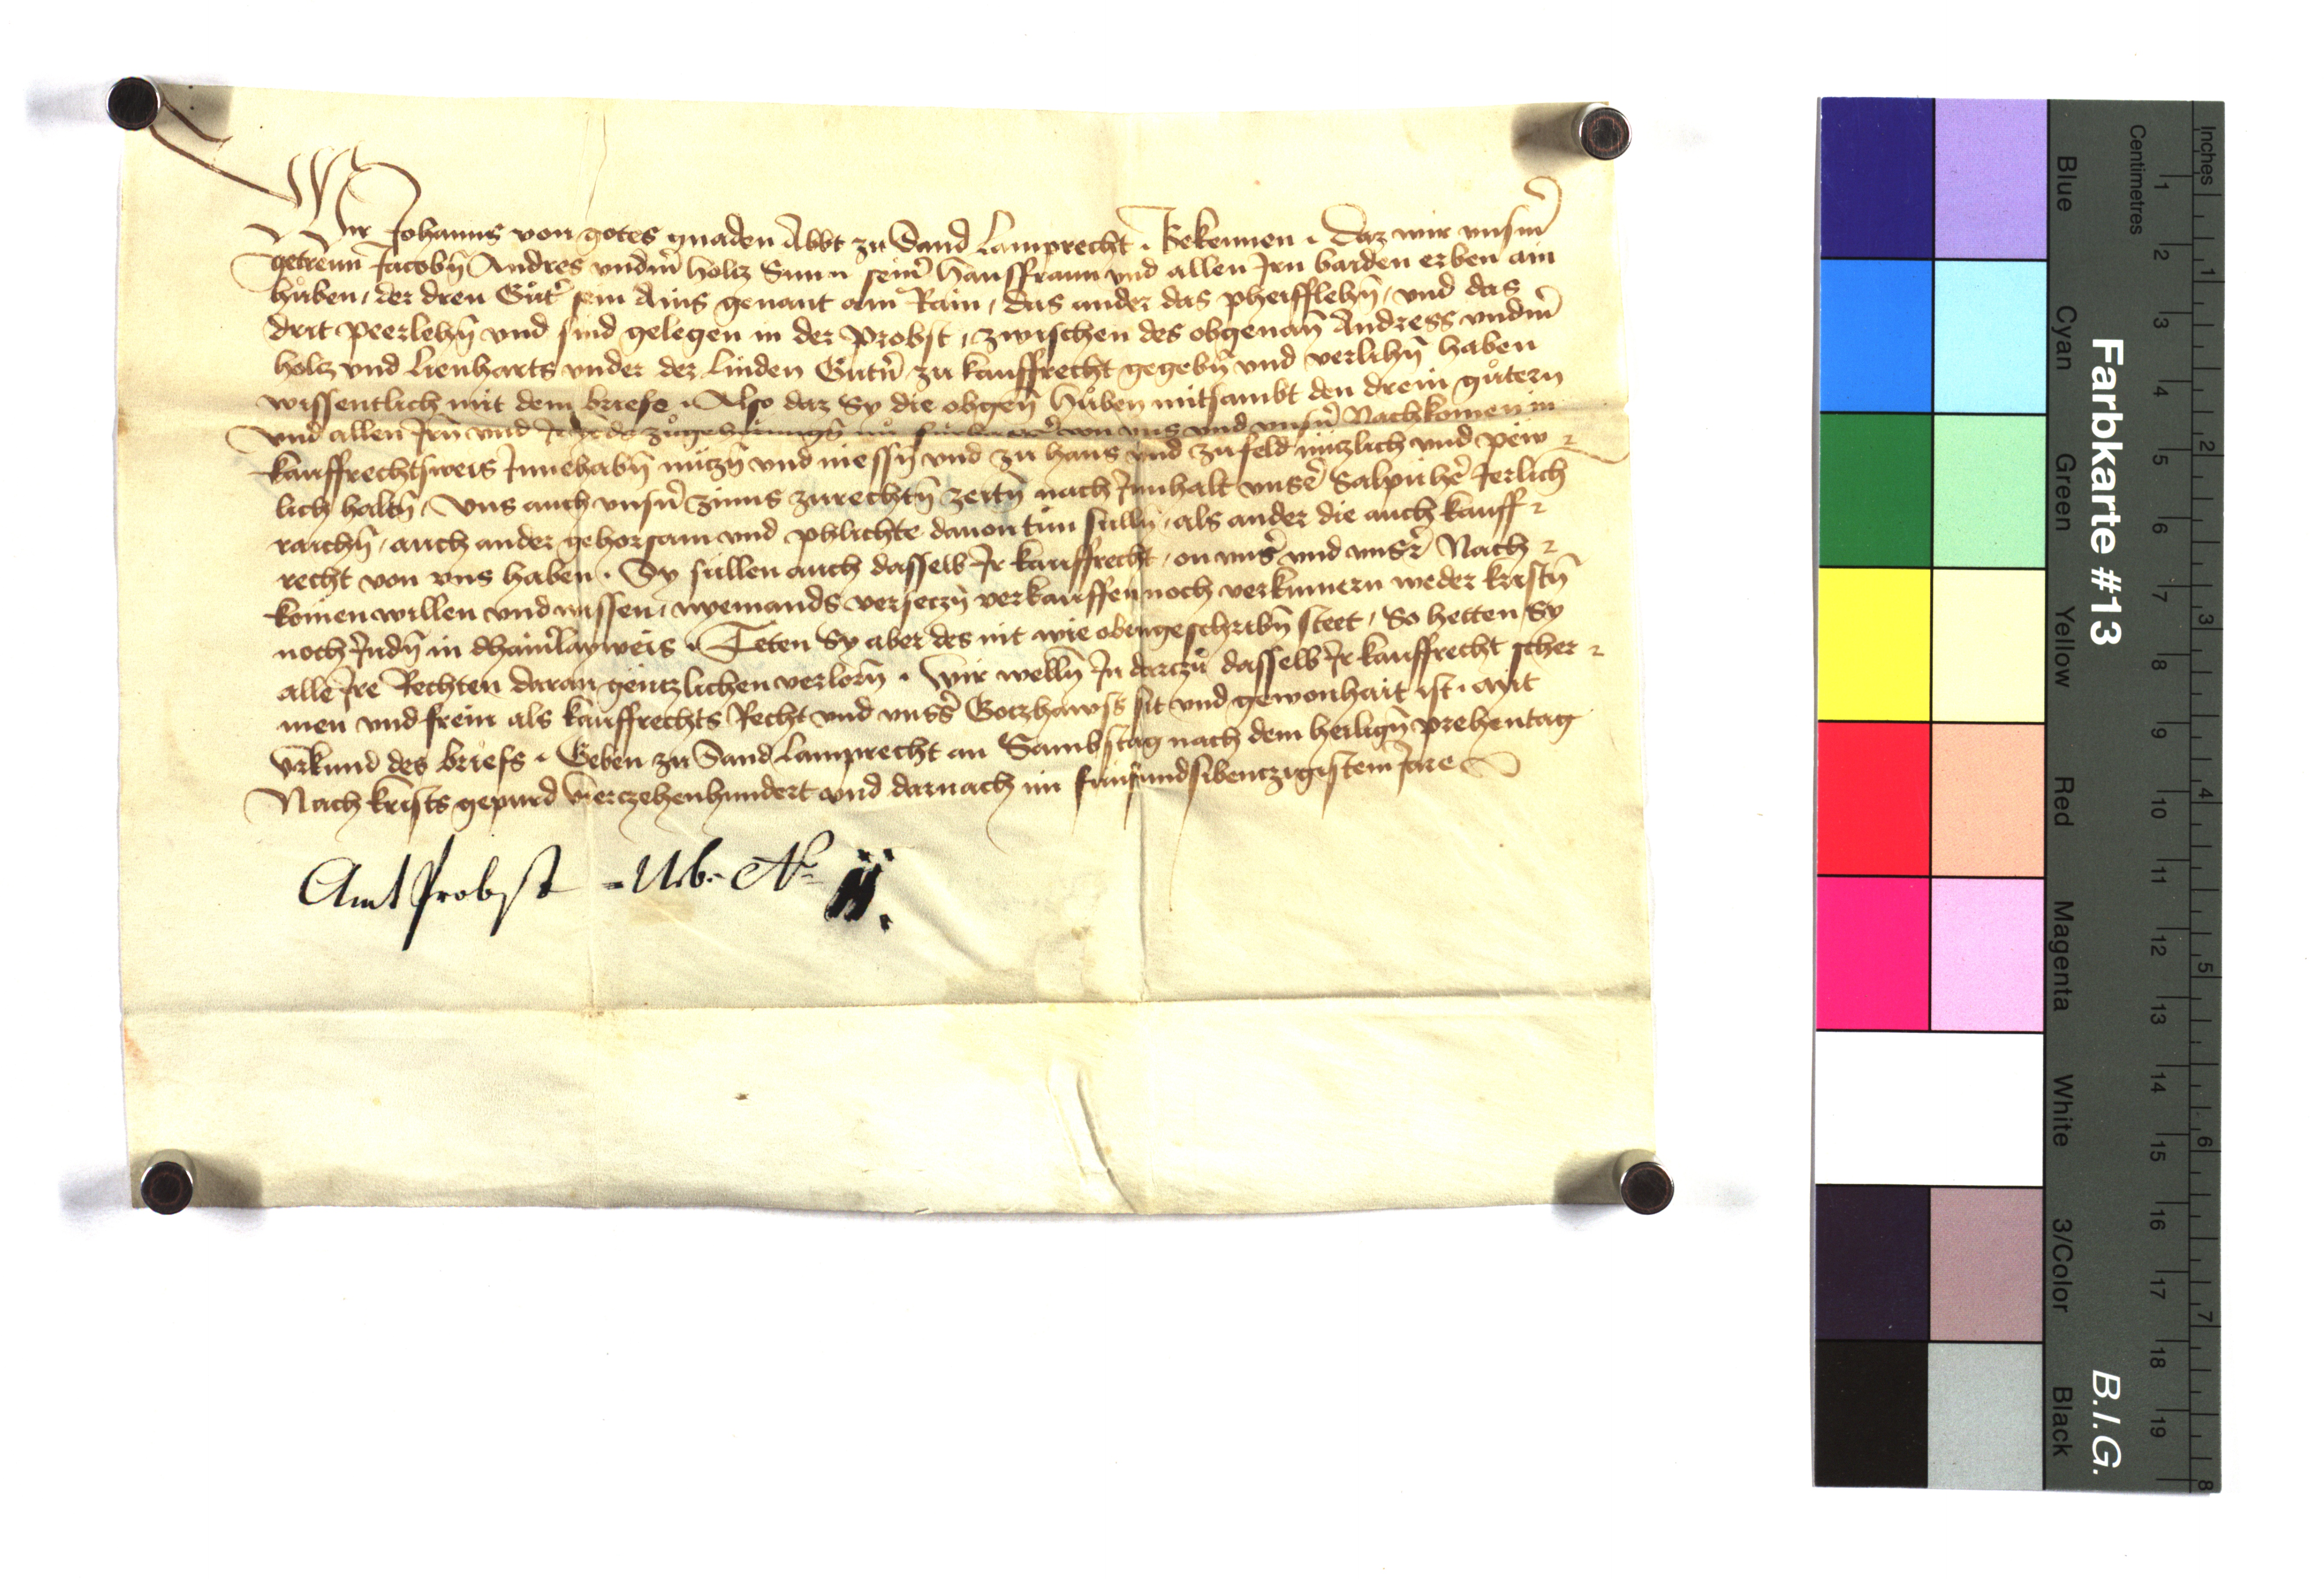 Wir Johanns von gotes gnaden Abbt zu Sand Lamprecht . Bekennen . Daz wir vnsm̄
getrewn Jacobn̄ Andres vndm̄ holcz Sun n seinr̄ hausfraun vnd allen Jrn baiden erben ain
hůben / der dreu Gůt̄ sein Ains genant am Rain / das ander das pheifflehn̄ / vnd das
drit peerlehn̄ vnd sind gelegen in der Probst / zwischen des obgenan̄ Andress vndm̄
holcz vnd Lienharts vnder der Linden Gutn̄ zu kauffrecht gegebn̄ vnd verlihn̄ haben
wissentlich mit dem briefe . Also daz Sy die obgen̄ hůben mitsambt den drein gůtern
vnd allen Jrn̄ vnd zůgehorungn̄ nu von vns vnd vnsn̄ Nachkomen in
kauffrechtsweis Jnnehabn̄ nüczn̄ vnd niessn̄ vnd zu haus vnd zu feld nüczlich vnd pew
lich haltn̄ / Vns auch vnsn̄ zinns zu rechtn̄ zeitn̄ nach Jnnhalt vnsr̄ Jerlich
raichn̄ / auch ander gehorsam vnd phlichte dauon tůn sülln̄ / als ander die auch kauff
recht von vns haben . Sy süllen auch dasselb Jr kauffrecht / on vnsr̄ vnd vnsr̄ Nach
komen willen vnd wissen / nyemands verseczn̄ verkauffen noch verkumern weder kristn̄
noch Judn̄ in dhainrlayweis . Teten Sy aber des nit wie obengeschribn̄ steet / So hetten Sy
alle Jre Rechten daran genczlichen verlorn̄ . Wir welln̄ Jn darczů dasselb Jr kauffrecht scher
men vnd frein als kauffrechts Recht vnd vnsrs̄ Goczhawss sit vnd gewonhait ist . Mit
vrkund des briefs . Geben zu Sand Lamprecht an Sambstag nach dem heilign̄ prehentag
Nach krists gepurd vierczehenhundert vnd darnach im fünfundsibenczigistem Jare
Amt Probst - Urb: No ij.
Farbkarte #13
B.I.G.
Inches
Centimetres
1 2 3 4 5 6 7 8 9 10 11 12 13 14 15 16 17 18 19
1 2 3 4 5 6 7 8
Blue
Cyan
Green
Yellow
Red
Magenta
White
3/Color
Black